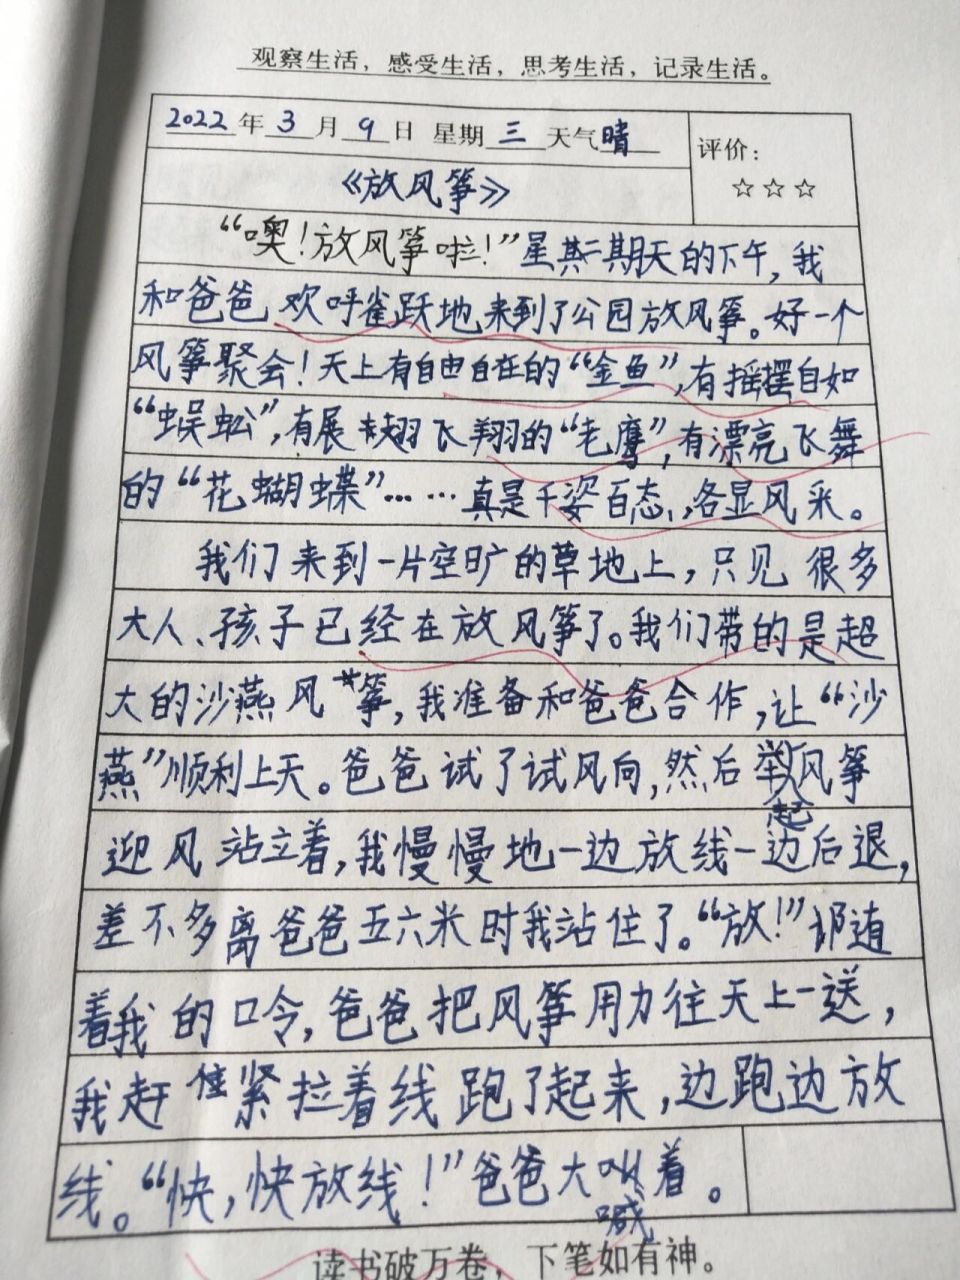 观察生活，感受生活，思考生活，记录生活。
2022年3月9日 星期三 天气晴
评价：
☆☆☆
《放风筝》
“噢！放风筝啦！”星期天的下午，我
和爸爸欢呼雀跃地来到了公园放风筝。好一个
风筝聚会！天上有自由自在的“金鱼”，有摇摆自如
“蜈蚣”，有展翅飞翔的“老鹰”，有漂亮飞舞
的“花蝴蝶”……真是千姿百态，各显风采。
我们来到一片空旷的草地上，只见很多
大人、孩子已经在放风筝了。我们带的是超
大的沙燕风筝，我准备和爸爸合作，让“沙
燕”顺利上天。爸爸试了试风向，然后举起风筝
迎风站立着，我慢慢地一边放线一边后退，
差不多离爸爸五六米时我站住了。“放！”
着我的口令，爸爸把风筝用力往天上一送，
我赶紧拉着线跑了起来，边跑边放
线。“快，快放线！”爸爸大喊着。
读书破万卷，下笔如有神。